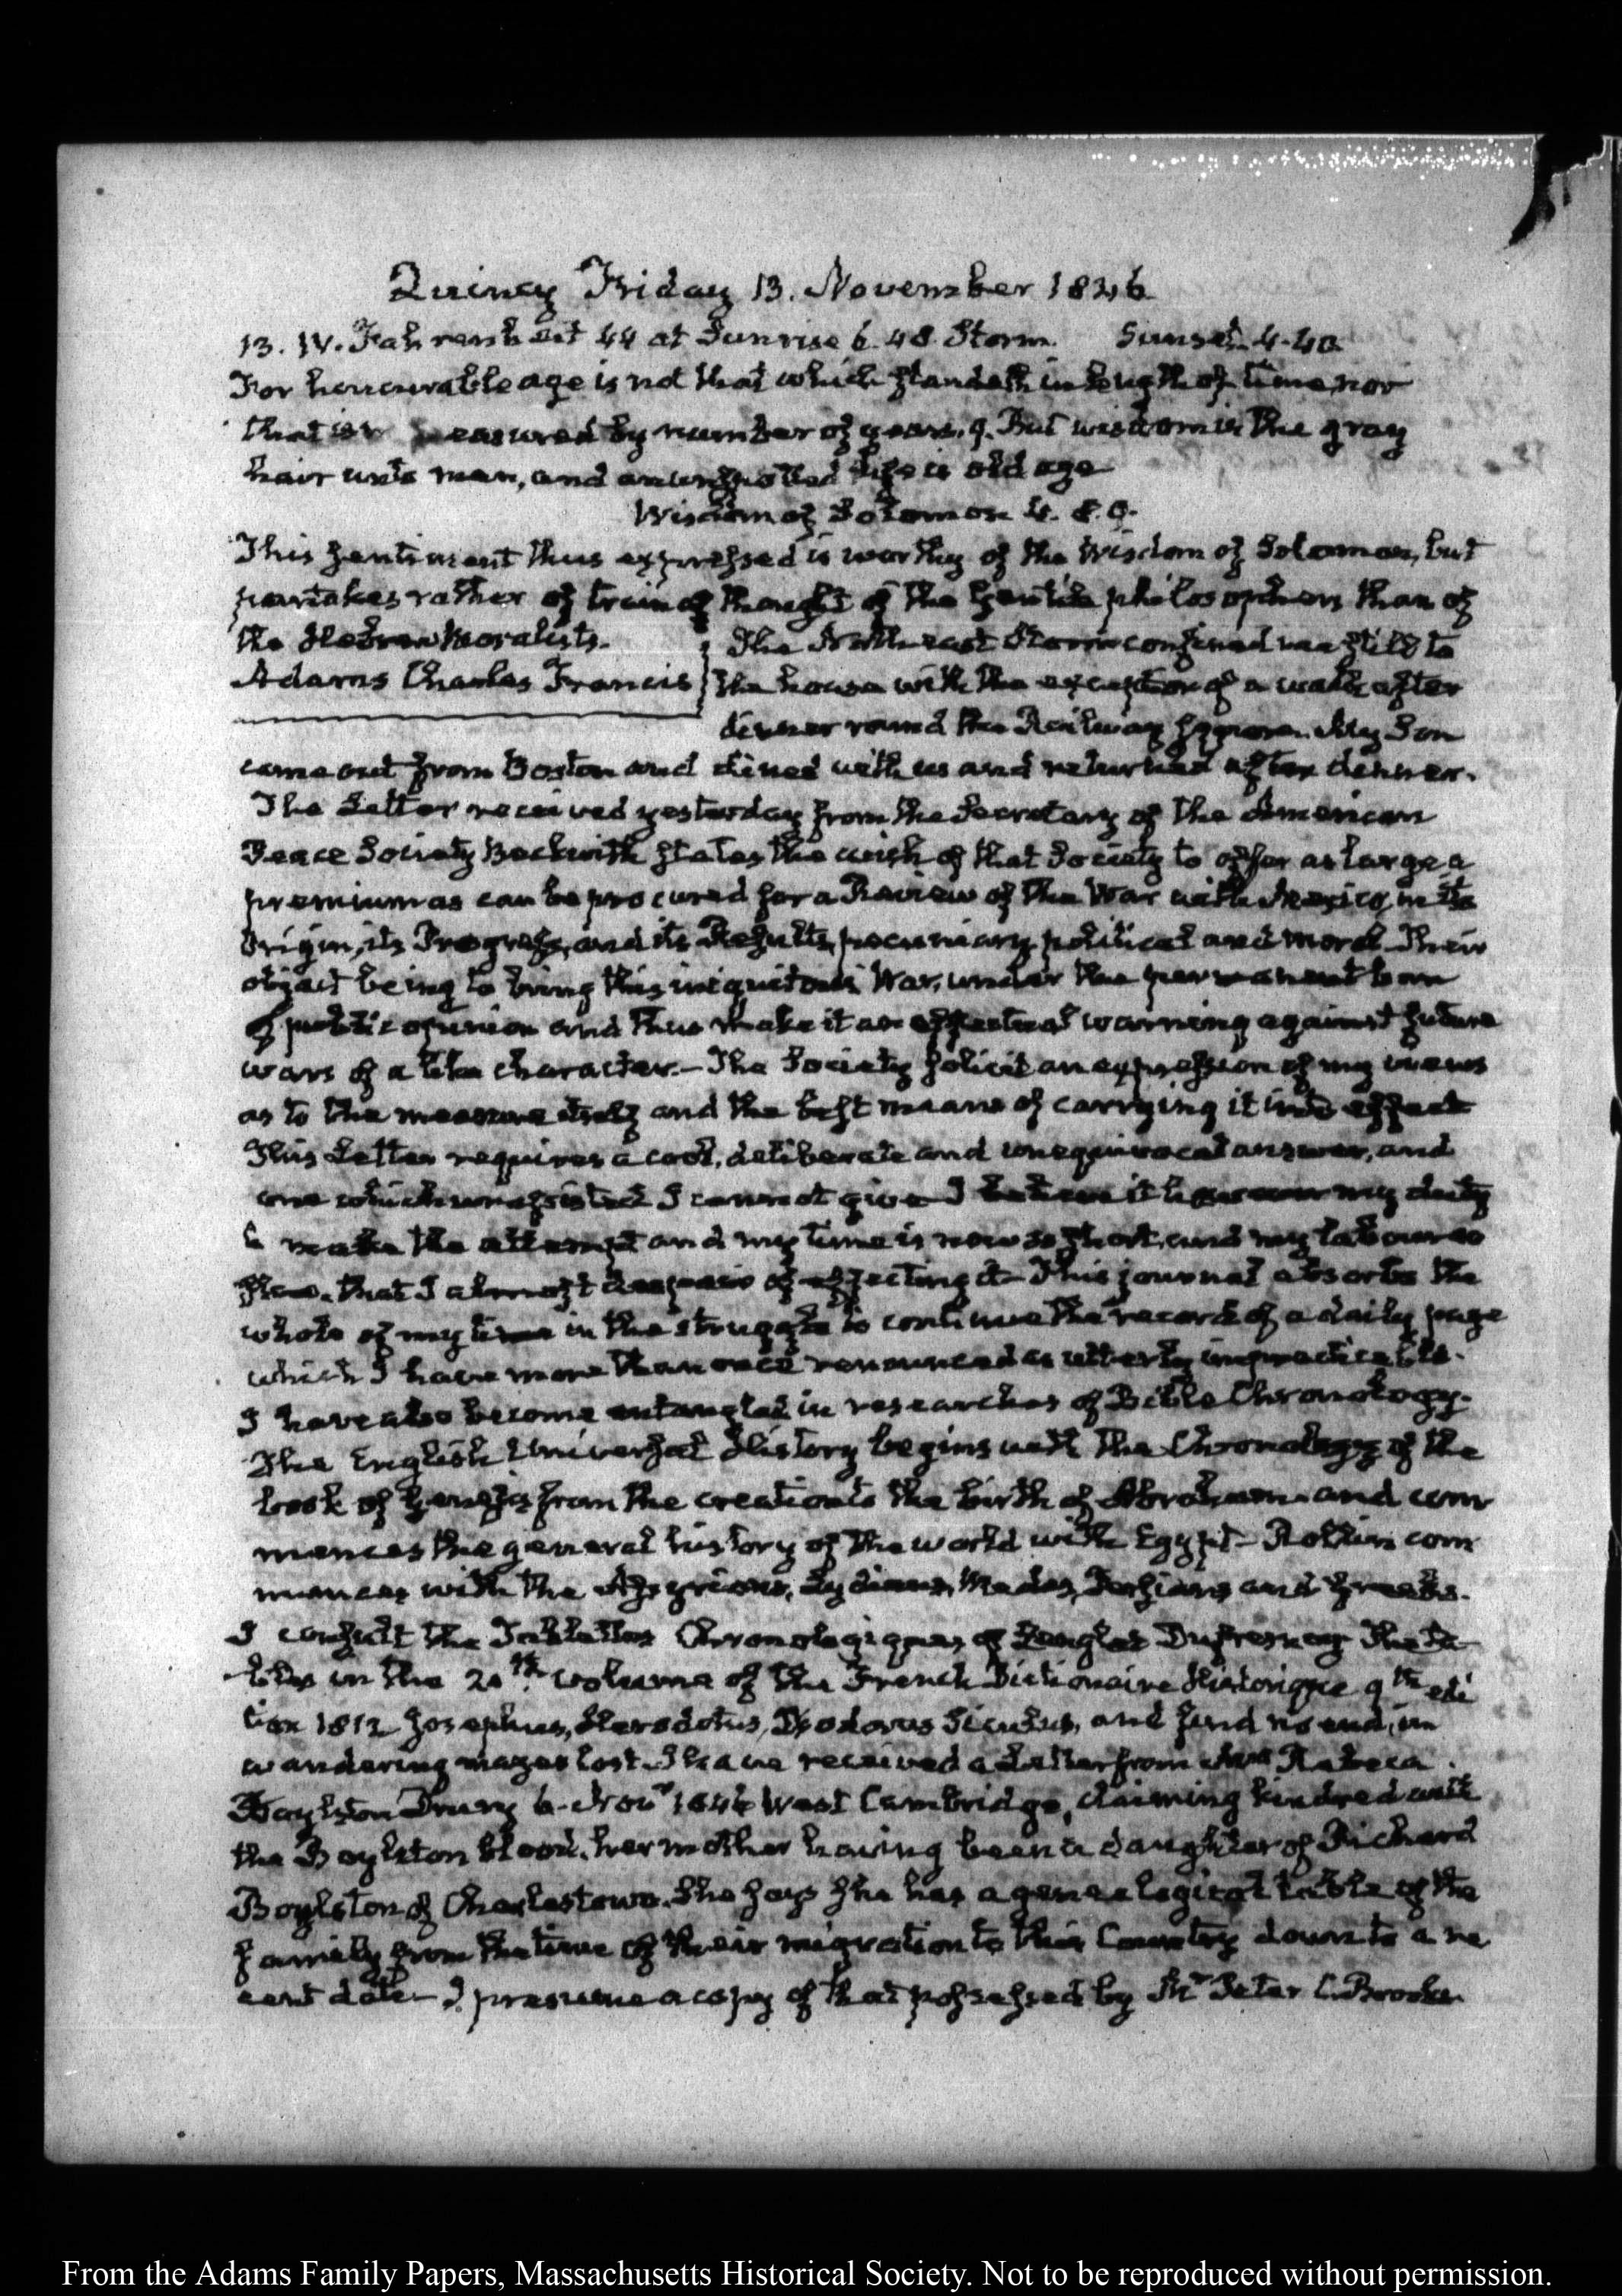 Quincy Friday 13. November 1846
13. IV. Fahrenheit 44 at Sunrise 6.48. Storm. Sunset 4.40
For honourable age is not that which standeth in length of time, nor
that is measured by number of years. 9. But wisdom is the gray
hair unto man, and an unspotted life is old age
Wisdom of Solomon 4. 8.9.
This sentiment thus expressed is worthy of the Wisdom of Solomon, but
partakes rather of train of thought of the Gentile philosophers than of
the Hebrew Moralists.
Adams Charles Francis
The North east Storm confined me still to
the house with the exception of a walk after
dinner round the Railway Square. My Son
came out from Boston and dined with us and returned after dinner.
The Letter received yesterday from the Secretary of the American
Peace Society Beckwith states the wish of that Society to offer as large a
premium as can be procured for a Review of the War with Mexico, in its
Origin, its Progress, and its Results, pecuniary, political and moral. Their
object being to bring this iniquitous War, under the permanent ban
of public opinion and thus make it an effectual warning against future
wars of a like character. – The Society solicit an expression of my views
as to the measure itself and the best means of carrying it into effect
This Letter requires a cool, deliberate and unequivocal answer, and
one which unassisted I cannot give – I believe it however my duty
to make the attempt and my time is now so short, and my labour so
slow, that I almost despair of effecting it – This journal absorbs the
whole of my time in the struggle to continue the record of a daily page
which I have more than once renounced as utterly impracticable.
I have also become entangled in researches of Bible Chronology.
The English Universal History begins with the Chronology of the
book of Genesis from the creation to the birth of Abraham and com
mences the general history of the world with Egypt – Rollin com
mences with the Assyrians, Lydians, Medes, Persians and Greeks.
I consult the Tablettes Chronologiques of Lenglet Dufresnoy The ta
bles in the 20th. volume of the French Dictionaire Historique 9th edi
tion 1812 Josephus, Herodotus, Diodorus Siculus, and find no end, in
wandering mazes lost. I have received a Letter from Rebeca
Boylston Drury 6. Novr 1846 West Cambridge, claiming kindred with
the Boylston blood, her mother having been a daughter of Richard
Boylston of Charlestown. She says she has a genealogical table of the
family from the time of their migration to this Country down to a re
cent date – I presume a copy of that possessed by Mr Peter C. Brooks
From the Adams Family Papers, Massachusetts Historical Society. Not to be reproduced without permission.